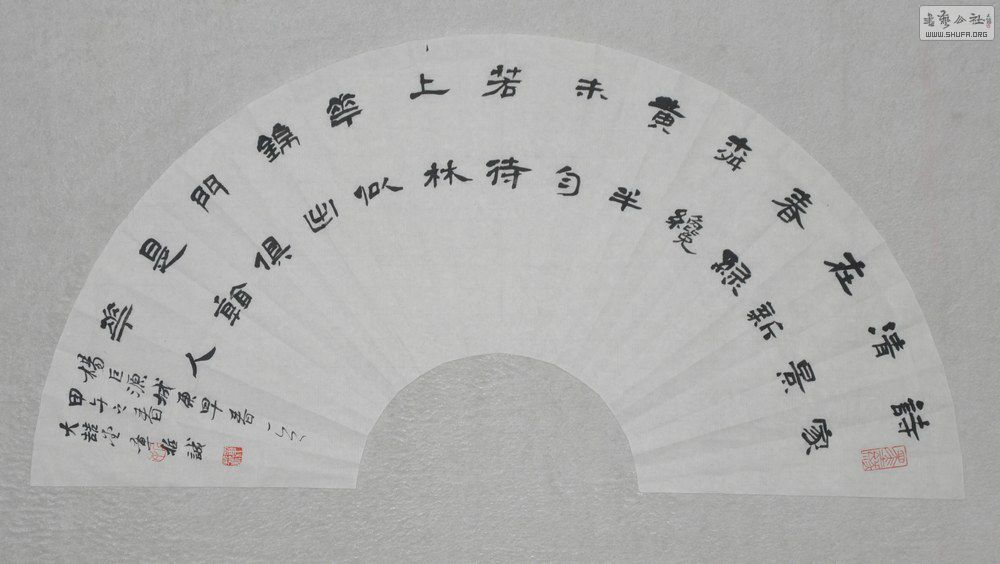 詩家
清景
在新
春綠
柳纔
黃半
未勻
若待
上林
華似
錦出
門俱
是看
華人
楊巨源城東早春一首
甲午之春
書藝公社
WWW.SHUFA.ORG